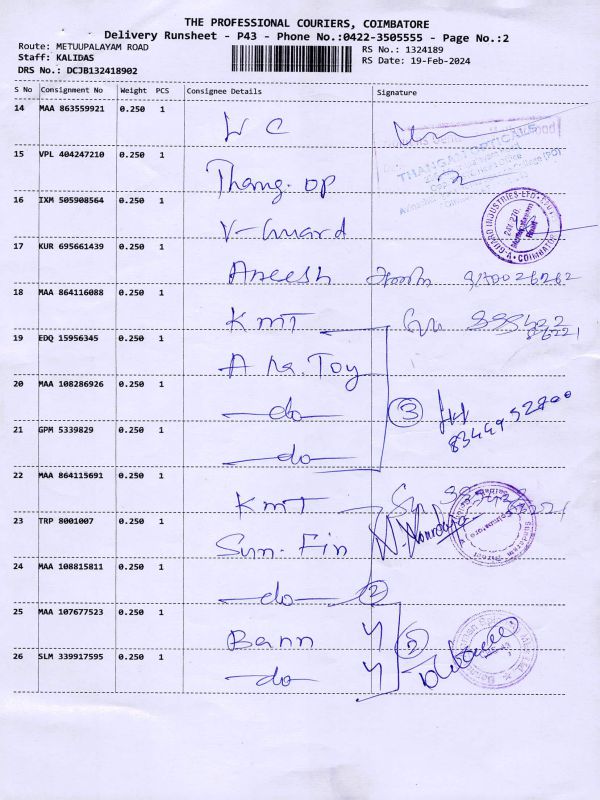 THE PROFESSIONAL COURIERS, COIMBATORE
Delivery Runsheet - P43 - Phone No.:0422-3505555 - Page No.:2
Route: METUUPALAYAM ROAD
Staff: KALIDAS
DRS No.: DCJB132418902
RS No.: 1324189
RS Date: 19-Feb-2024
S No Consignment No Weight PCS Consignee Details Signature
14 MAA 863559921 0.250 1
L C
15 VPL 404247210 0.250 1
THANGAM OPTICALS
Thang. op
16 IXM 505908564 0.250 1
V-Guard
V-GUARD INDUSTRIES LTD
COIMBATORE
17 KUR 695661439 0.250 1
Aneesh
18 MAA 864116088 0.250 1
KMT
19 EDQ 15956345 0.250 1
A Na. Toy
20 MAA 108286926 0.250 1
do
3
21 GPM 5339829 0.250 1
do
22 MAA 864115691 0.250 1
KMT
23 TRP 8001007 0.250 1
Sun. Fin
24 MAA 108815811 0.250 1
do
2
25 MAA 107677523 0.250 1
Bann
2
26 SLM 339917595 0.250 1
do